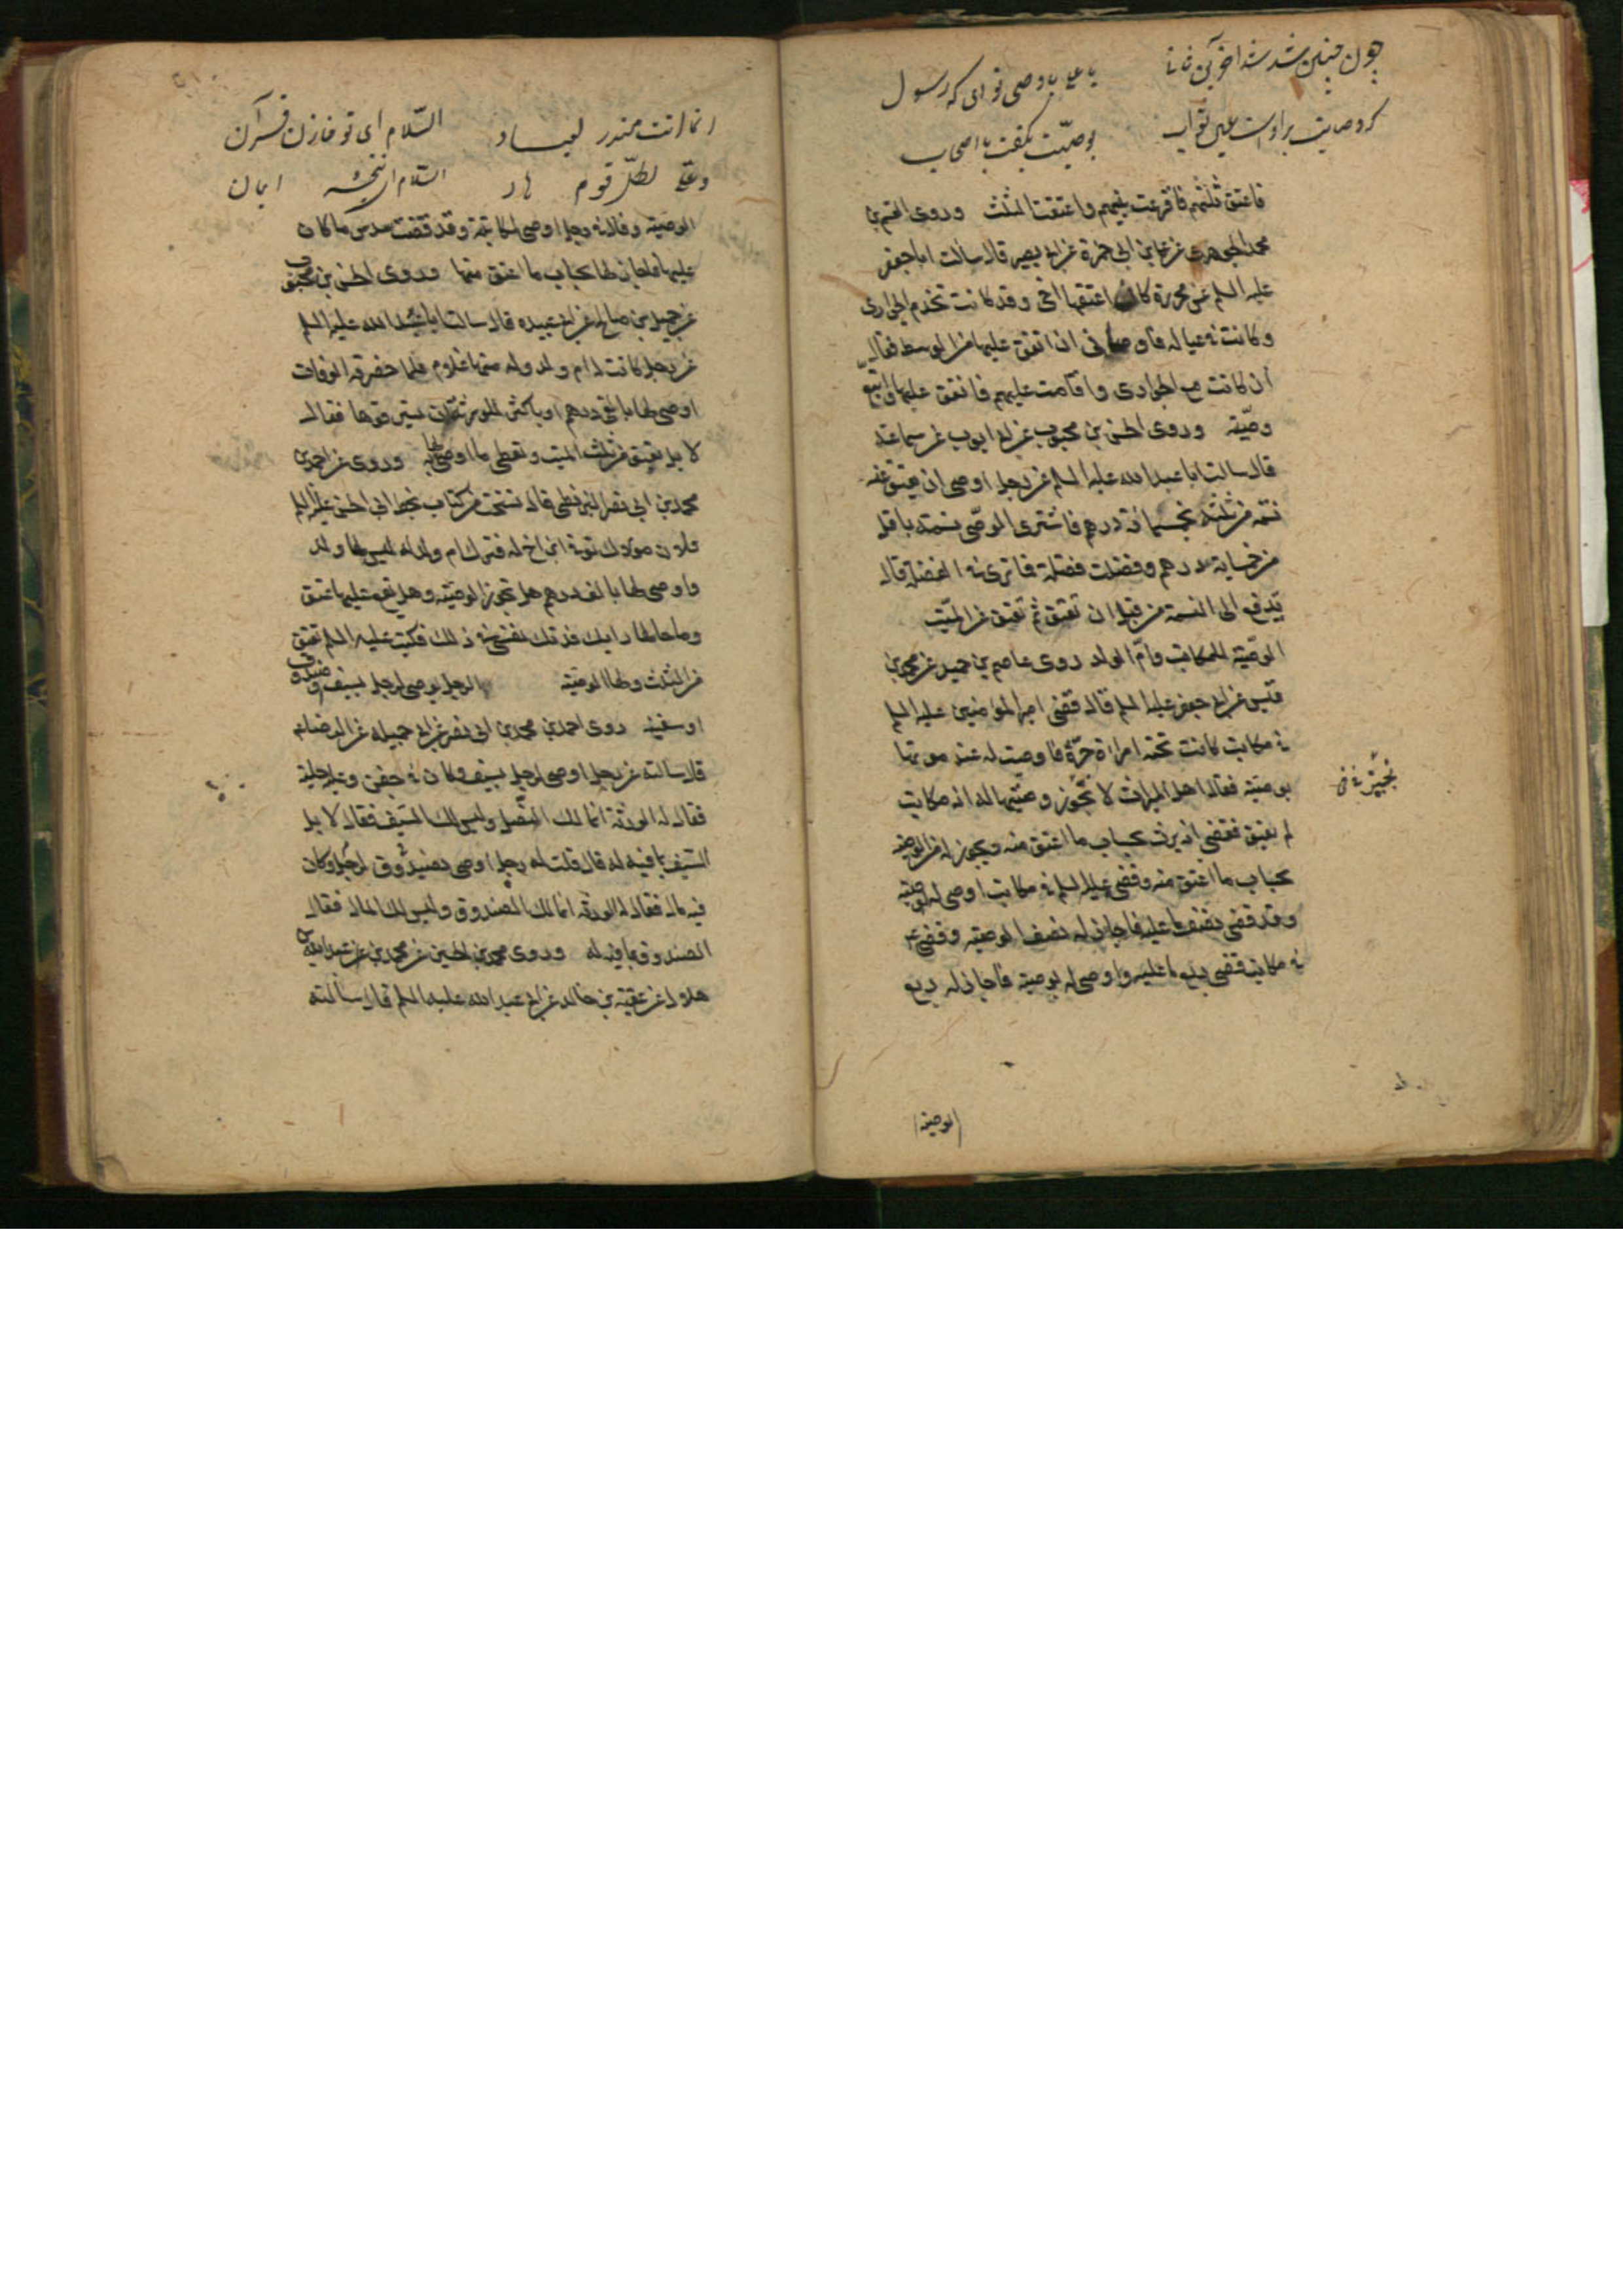 چون چنین شد
یا علی یا وصی توای که رسول
کرد وصایت
بوصیّت بگفت با اصحاب
فاعتق ثلثهم فاقرعت بینهم واعتقت الثلث وروی القسم بن
محمد الجوهری عن علی بن ابی حمزة عن ابی بصیر قال سالت ابا جعفر
علیه السلم عن محررة کان اعتقها اخی وقد کانت تخدم الجواری
وکانت فی عیاله فاوصانی ان انفق علیها من الوسط فقال
ان کانت مع الجواری واقامت علیهم فانفق علیها واتبع
وصیّته وروی الحسن بن محبوب عن ابی ایوب عن سماعة
قال سالت ابا عبد الله علیه السلم عن رجل اوصی ان یعتق عنه
نسمة من ثلثه بخمسمائة درهم فاشتری الوصّی نسمة باقل
من خمسمایة درهم وفضلت فضلة فما تری فی الفضلة قال
یدفع الی النسمة من قبل ان تعتق ثم تعتق عن المیّت
الوصیّة للمکاتب وامّ الولد روی عاصم بن حمید عن محمد بن
قیس عن ابی جعفر علیه السلم قال قضی امیر المؤمنین علیه السلم
فی مکاتب کانت تحته امراة حرّة فاوصت له عند موتها
بوصیّة فقال اهل المیراث لا تجوز وصیّتها له انه مکاتب
لم یعتق فقضی انه یرث بحساب ما اعتق منه ویجوز له من الوصیة
بحساب ما اعتق منه وقضی علیه السلم فی مکاتب اوصی له بوصیّة
وقد قضی نصف ما علیه فاجاز له نصف الوصیة وقضی ع
فی مکاتب قضی ربع ما علیه واوصی له بوصیة فاجاز له ربع
الوصیة
انما انت منذر لعباد
السّلام ای تو خازن قرآن
وعلی لکلّ قوم هاد
السّلام ای نتیجه ایمان
الوصیّة وقال فی رجل اوصی لمکاتبة وقد قضت سدس ما کان
علیها فاجاز لها بحساب ما اعتق منها وروی الحسن بن محبوب
عن جمیل بن صالح عن ابی عبیده قال سالت ابا عبد الله علیه السلم
عن رجل کانت له ام ولد وله منها غلام فلما حضرته الوفات
اوصی لها بالفی درهم او باکثر للورثة ان یسترقوها فقال
لا بل تعتق من ثلث المیت وتعطی ما اوصی لها به وروی عن احمد بن
محمد بن ابی نصر البزنطی قال نسخت من کتاب بخط ابی الحسن علیه السلم
فلان مولاک توفی ابن اخ له فترک ام ولد له لیس لها ولد
واوصی لها بالف درهم هل تجوز الوصیّة وهل یقع علیها عتق
وما حالها رایک فدتک نفسی فی ذلک فکتب علیه السلم تعتق
من الثلث ولها الوصیّة الرجل یوصی لرجل بسیف او صندوق
او سفینة روی احمد بن محمد بن ابی نصر عن ابی جمیلة عن الرضا ع
قال سالته عن رجل اوصی لرجل بسیف وکان فی جفن وعلیه حلیة
فقال له الورثة انما لک النصل ولیس لک السّیف فقال لا بل
السّیف بما فیه له قال قلت له رجل اوصی بصندوق لرجل وکان
فیه مال فقال له الورثة انما لک الصندوق ولیس لک المال فقال
الصندوق بما فیه له وروی محمد بن الحسین عن محمد بن عبد الله بن
هلال عن عقبة بن خالد عن ابی عبد الله علیه السلم قال سالته